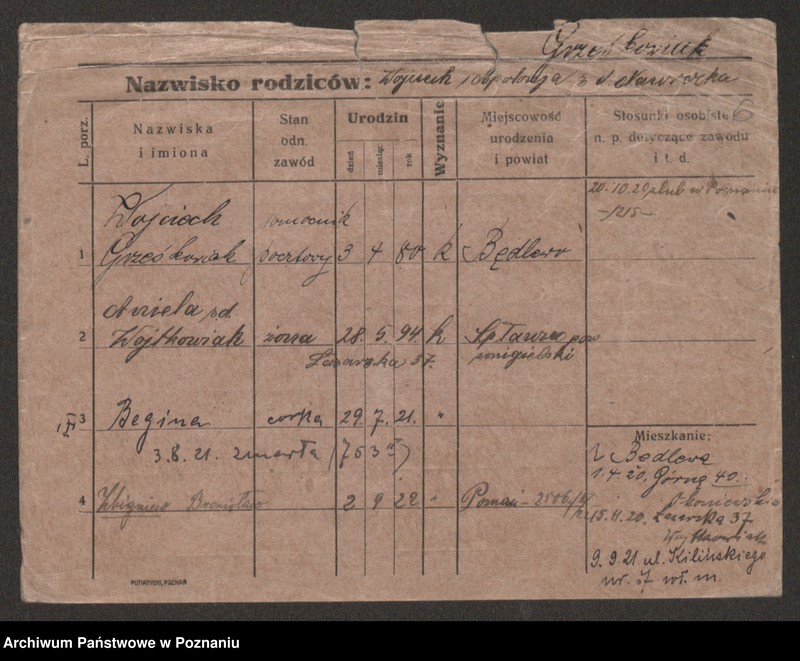 Grześkowiak
Nazwisko rodziców: Wojciech, Apolonja z d. Nawrocka
L. porz.
Nazwiska i imiona
Stan odn. zawód
Urodzin
dzień
miesiąc
rok
Wyznanie
Miejscowość urodzenia i powiat
Stosunki osobiste n. p. dotyczące zawodu i t. d.
6
20.10.20 ślub w Poznaniu
1215
Wojciech pomocnik
1 Grześkowiak pocztowy 3 4 80 k Będlewo
Aniela z d.
2 Wojtkowiak żona 28. 5. 94. k Spławie pow
Łazarska 37. śmigielski
3 Regina corka 29. 7. 21. "
3.8.21. zmarła (753 )
4 Zbigniew Bronisław 2 9 22 " Poznań - 2506/
Mieszkanie:
z Będlewa
1.4.20, Górna 40.
15.11.20. Łazarska 37
Wojtkowiak
9.9.21. ul. Kilińskiego
nr. 7 wł. m.
PUTIATYCKI, POZNAŃ
Archiwum Państwowe w Poznaniu